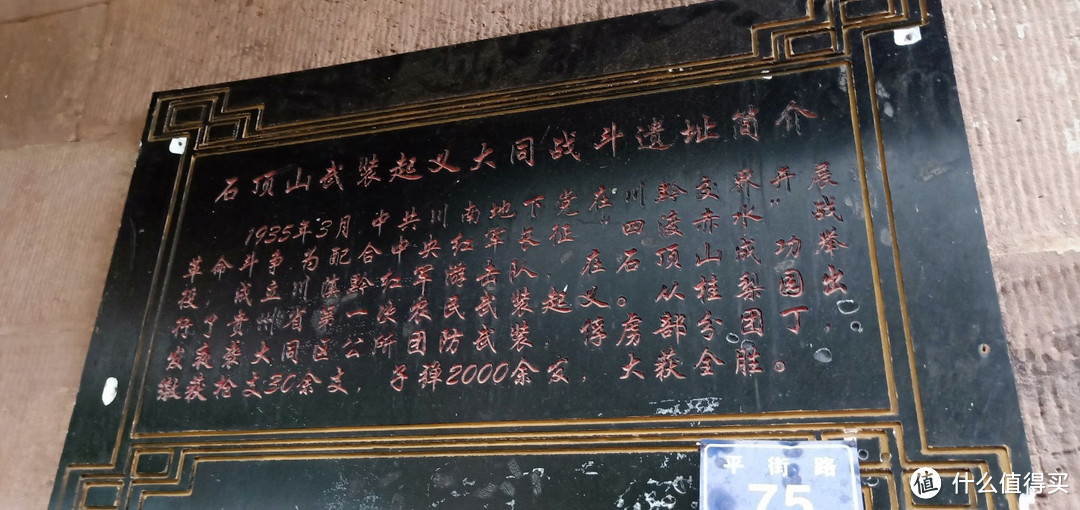 石顶山武装起义大同战斗遗址简介
1935年3月中共川南地下党在川黔交界开展
革命斗争为配合中央红军长征“四渡赤水”战
役，成立川滇黔红军游击队，在石顶山成功举
行了贵州省第一次农民武装起义。从桂梨园出
发夜袭大同区公所团防武装，俘虏部分团丁，
缴获枪支30余支，子弹2000余发，大获全胜。
平街路
75
值 什么值得买